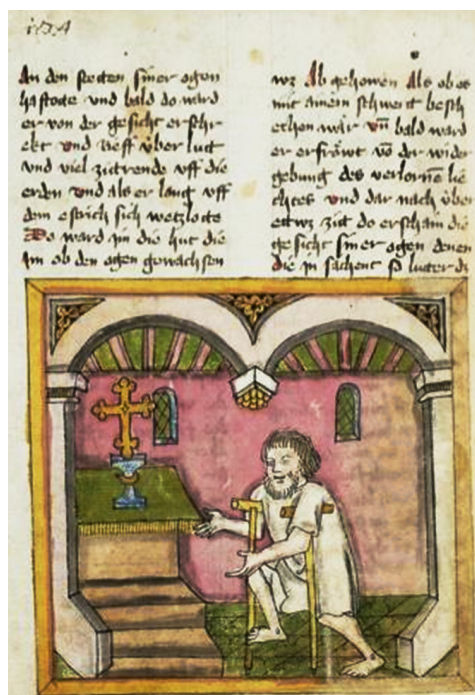 An den stetten siner ogen
hastote vnd bald do ward
er von der gesicht erschr
ekt vnd lieff vͤber lut
vnd viel zitrende vff die
erden vnd als er lang vff
dem estrich sich wetzlote
Do ward im die hut die
im ob den ogen gewachsen
wz Ab gehowen Als ob es
mit ainem schwert besch
echen waͤr vn̄ bald ward
er erfroͤwt vō der wider
gebung des verlornē lie
chtes vnd dar nach vͤber
etwz zit do erschain die
gesicht siner ogen denen
die in sachent so luter dz